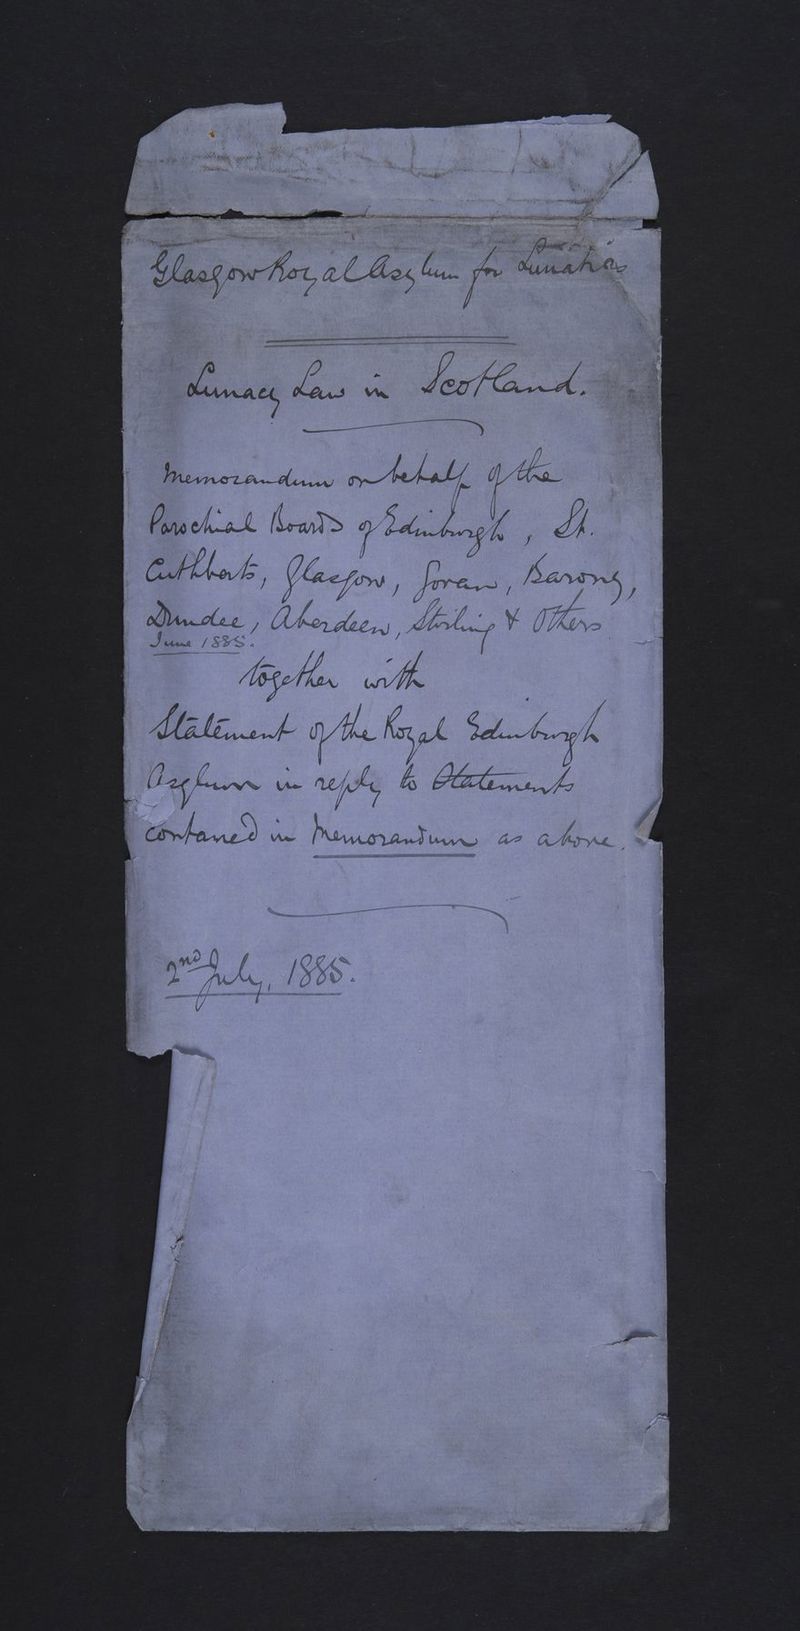 Glasgow Royal Asylum for Lunatics
Lunacy Law in Scotland.
Memorandum on behalf of the
Parochial Boards of Edinburgh, St.
Cuthberts, Glasgow, Govan, Barony,
Dundee, Aberdeen, Stirling & Others
June 1885.
together with
Statement of the Royal Edinburgh
Asylum in reply to Statements
contained in Memorandum as above.
2nd July, 1885.